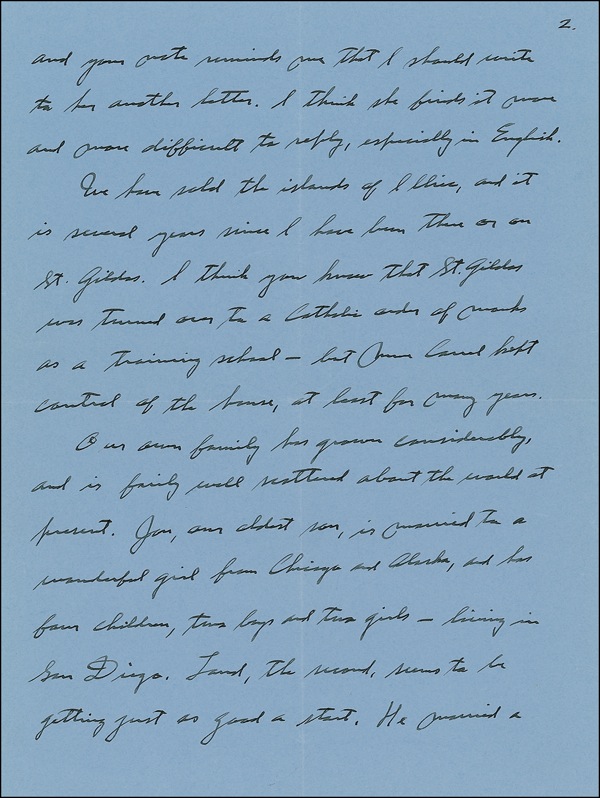 2.
and your note reminds me that I should write
to her another letter. I think she finds it more
and more difficult to reply, especially in English.
We have sold the islands of Illiec, and it
is several years since I have been there or on
St. Gildas. I think you know that St. Gildas
was turned over to a Catholic order of monks
as a training school — but Mme Carrel kept
control of the house, at least for many years.
Our own family has grown considerably,
and is fairly well scattered about the world at
present. Jon, our oldest son, is married to a
wonderful girl from Chicago and Alaska, and has
four children, two boys and two girls — living in
San Diego. Land, the second, seems to be
getting just as good a start. He married a